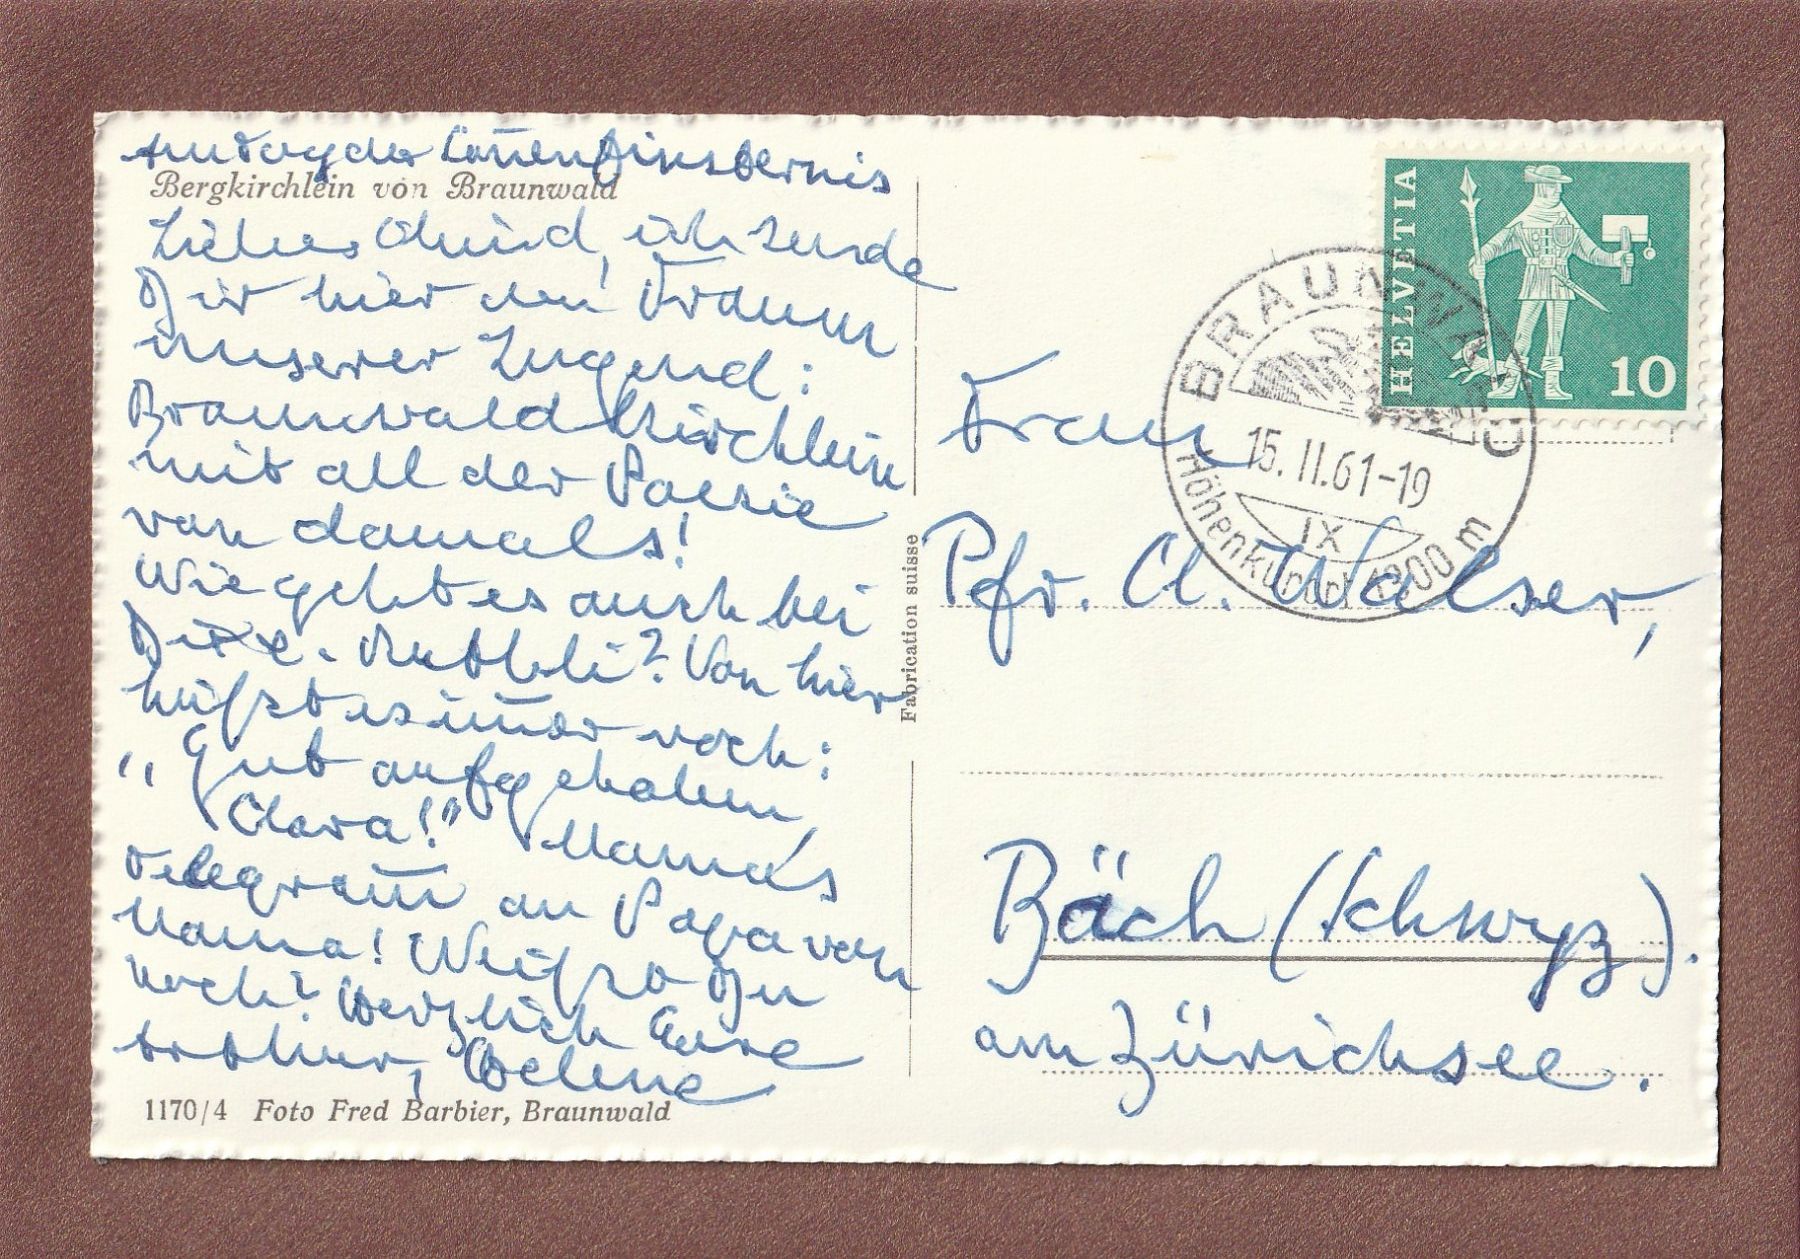 Am Tag der Sonnenfinsternis
Bergkirchlein von Braunwald
Liebes ich sende
Dir hier den Traum
unserer Jugend:
Braunwald Kirchlein
mit all der Poesie
von damals!
Wie geht es auch bei
Von hier
heisst es immer noch:
"Gut aufgehoben,
Clara!" Mama's
Telegramm an Papa von
Mama! Weisst Du
noch? Herzlich Eure
Helene
1170/4 Foto Fred Barbier, Braunwald
Fabrication suisse
HELVETIA
10
BRAUNWALD
15.II.61-19
IX
Höhenkurort 1300 m
Frau
Pfr. Cl. Walser,
Bäch (Schwyz).
am Zürichsee.